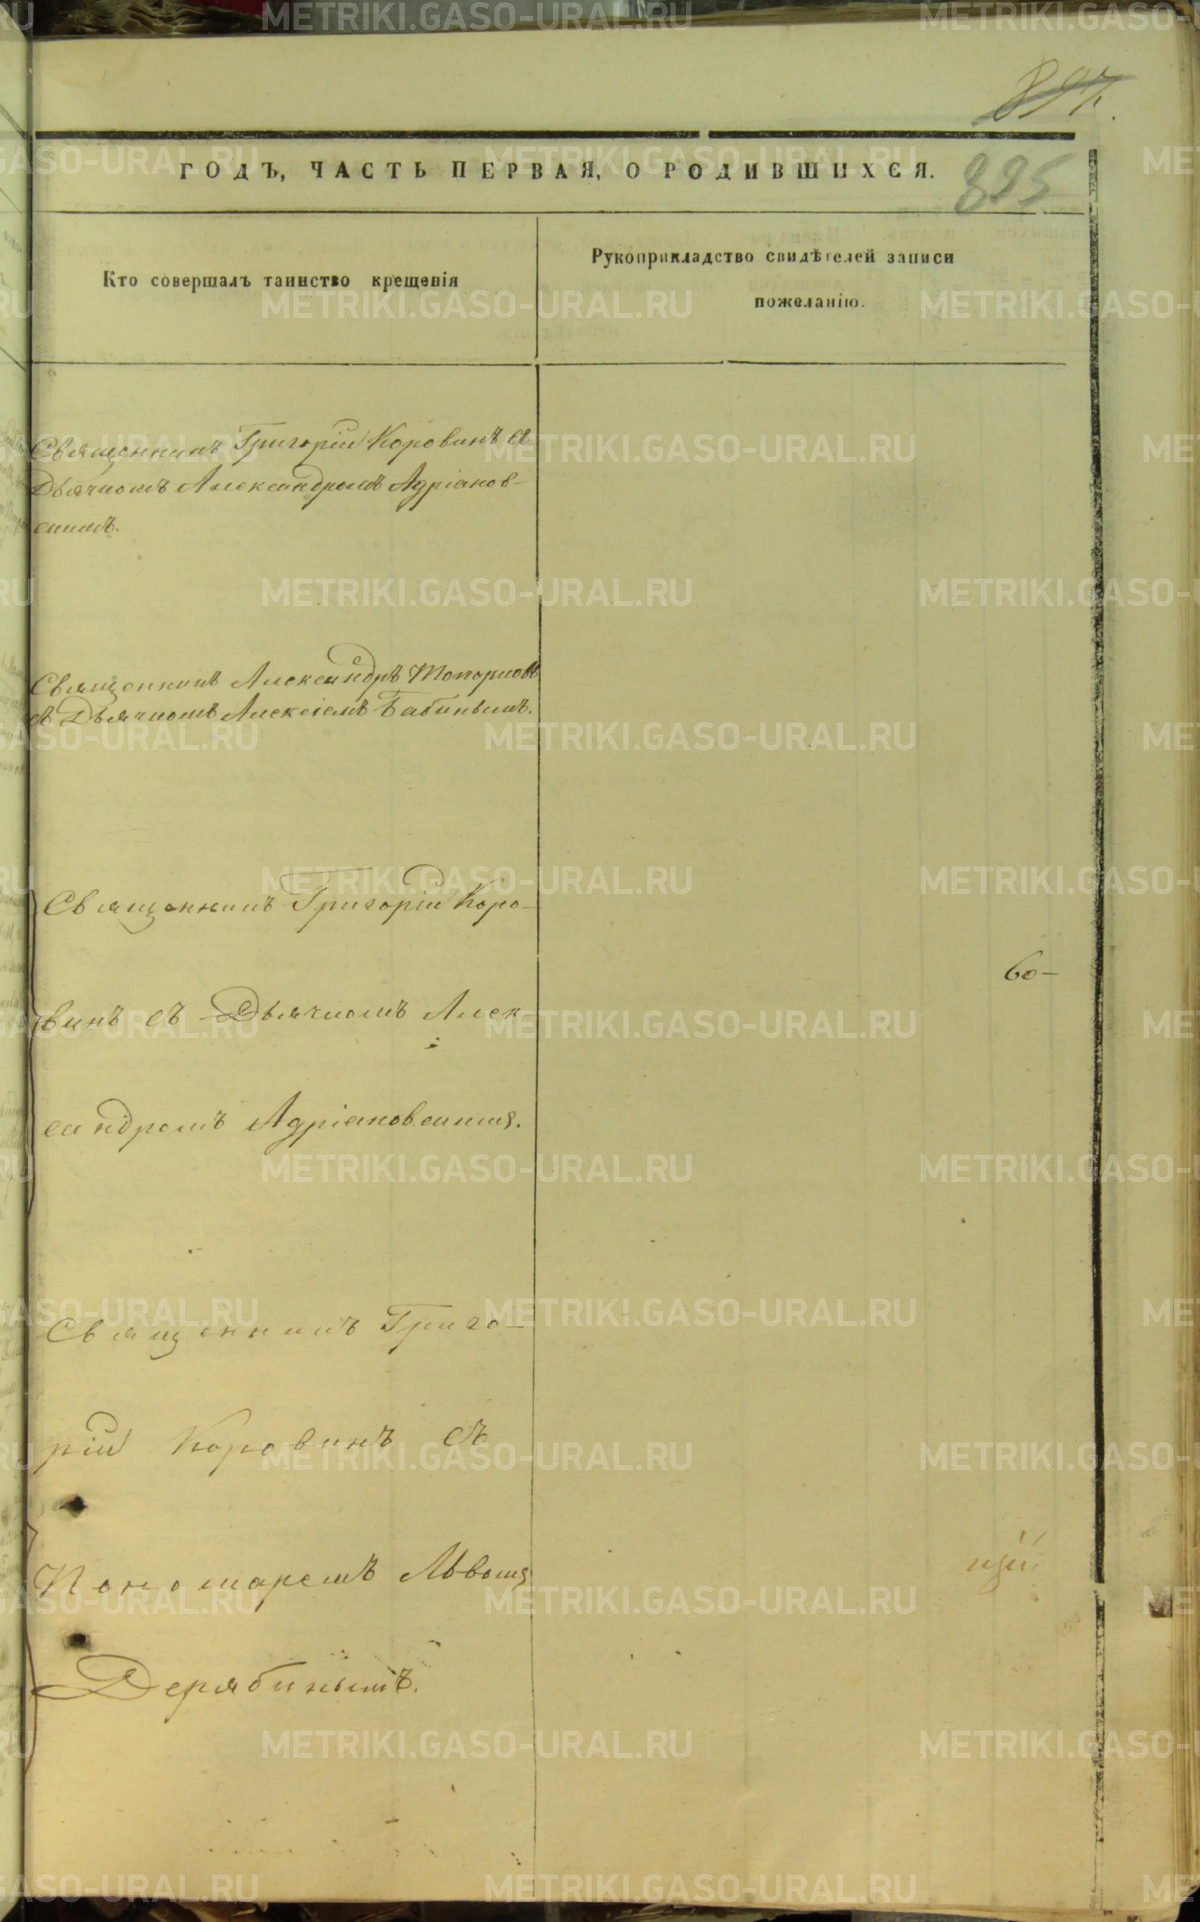 897.
ГОДЪ, ЧАСТЬ ПЕРВАЯ, О РОДИВШИХСЯ.
895
Кто совершалъ таинство крещенія
Рукоприкладство свидѣтелей записи
пожеланію.
Священникъ Григорій Коровинъ съ
Дьячкомъ Александромъ Адріанов-
скимъ.
Священникъ Александръ Топорковъ
съ Дьячкомъ Алексіемъ Бабинымъ.
Священникъ Григорій Коро-
винъ съ Дьячкомъ Алек-
сандромъ Адріановскимъ.
60-
Священникъ Григо-
рій Коровинъ съ
Пономаремъ Львомъ
Дерябинымъ.
METRIKI.GASO-URAL.RU